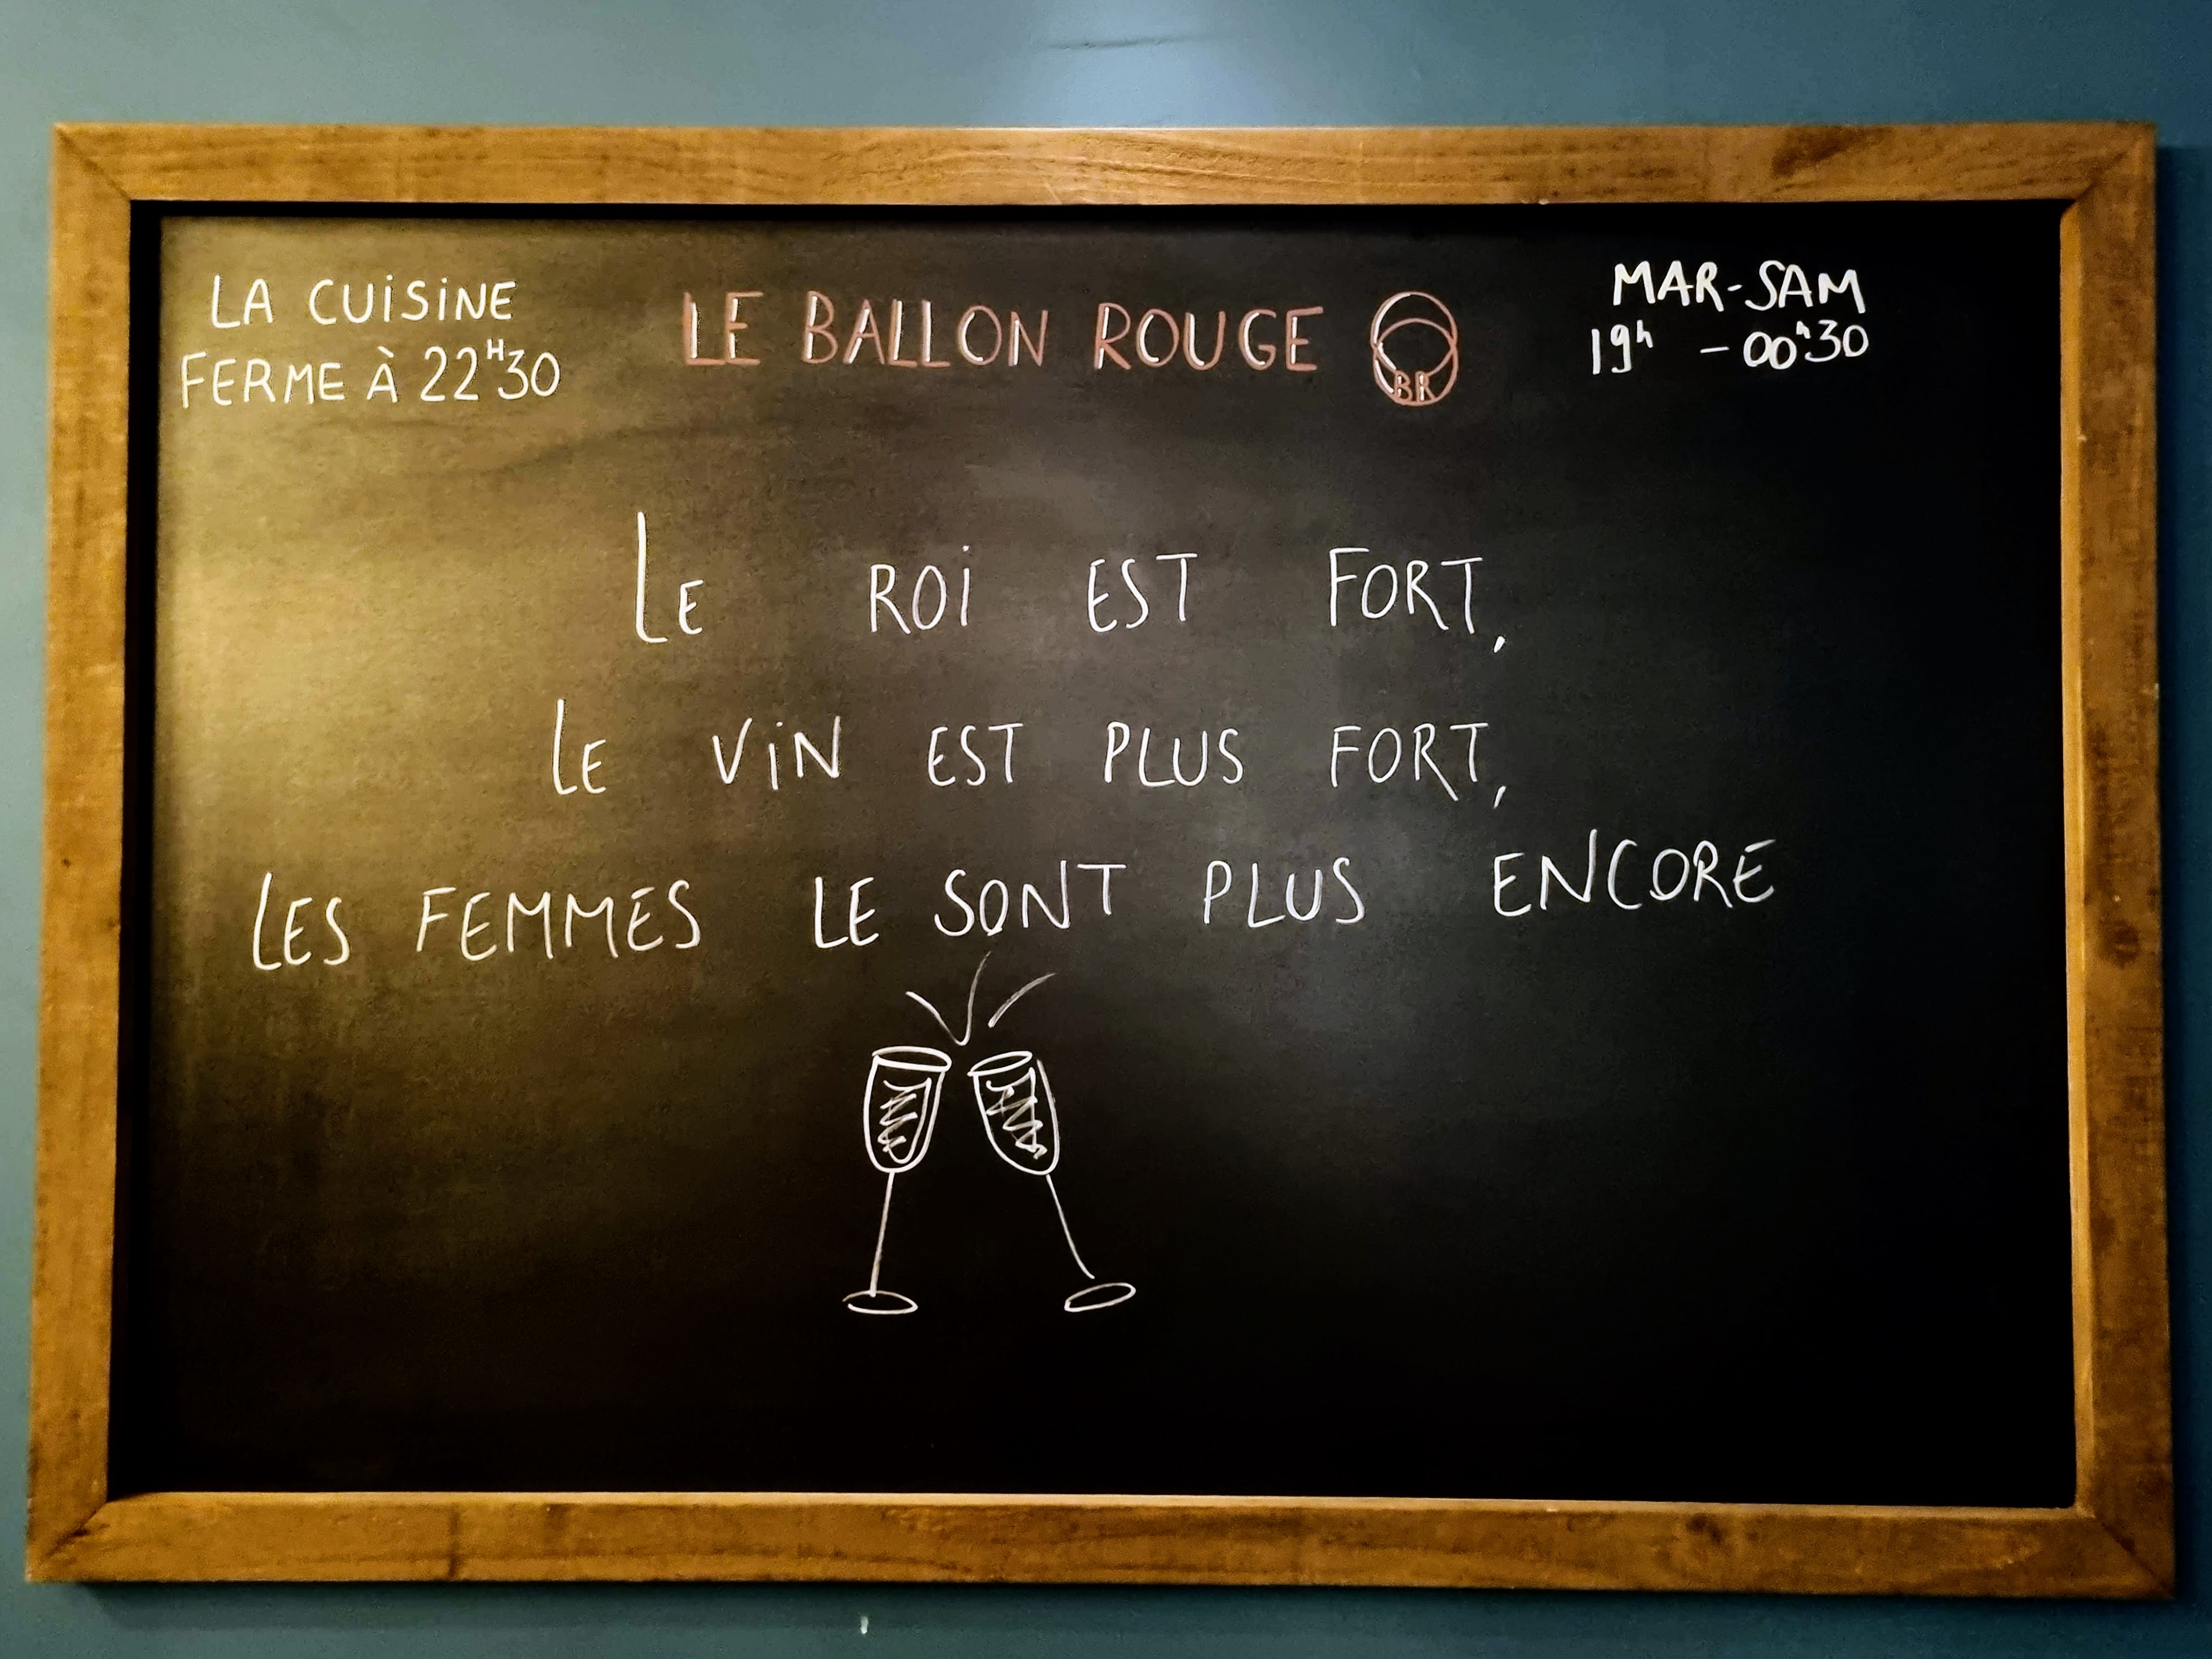 LA CUISINE
FERME À 22H30
LE BALLON ROUGE
BR
MAR-SAM
19h - 00h30
LE ROI EST FORT,
LE VIN EST PLUS FORT,
LES FEMMES LE SONT PLUS ENCORE